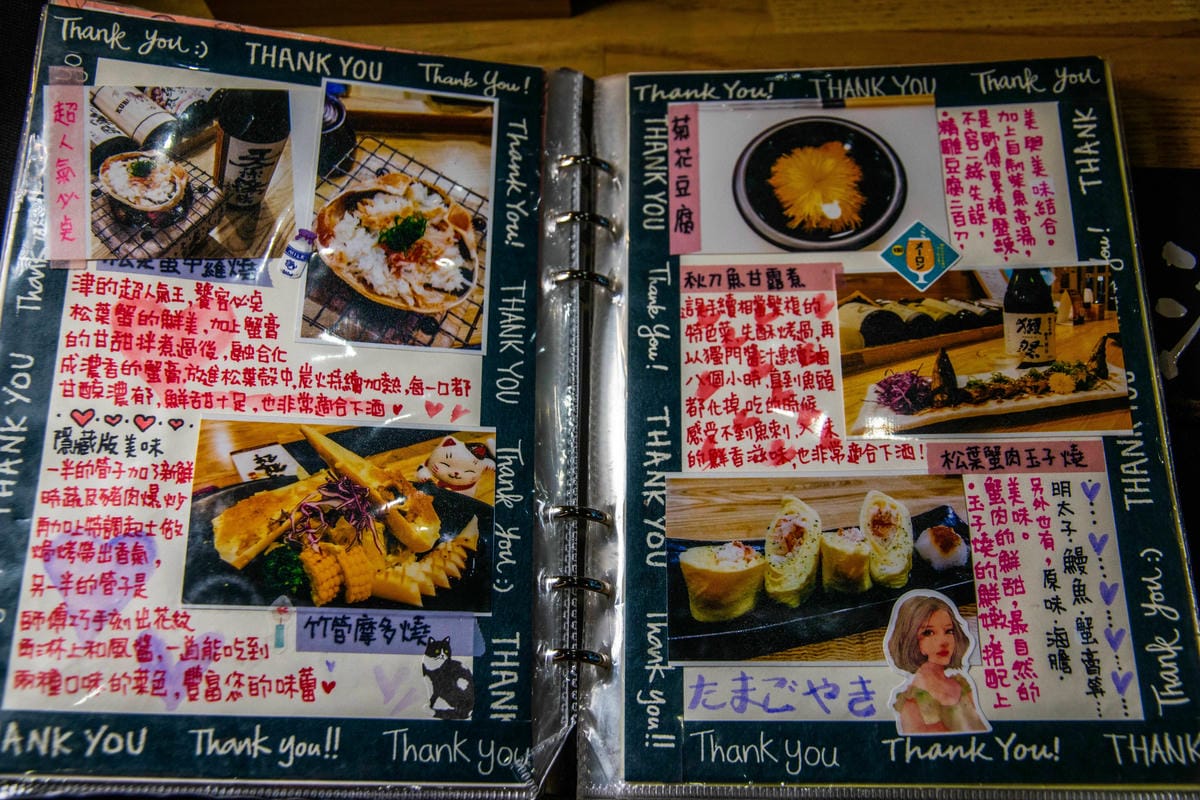 Thank You :)
THANK YOU
Thank You!
超人氣必桌
津的超人氣王，饕客必桌
松葉蟹的鮮美，加上蟹膏
的甘甜拌煮過後，融合化
成濃香的蟹膏，放進松葉殼中，炭火持續加熱，每一口都
甘醇濃郁，鮮甜十足，也非常適合下酒
隱藏版美味
一半的管子加了新鮮
時蔬及豬肉爆炒
再加上特調起士做
焗烤帶出香氣，
另一半的管子是
師傅巧手刻出花紋
配上和風醬，一道能吃到
兩種口味的菜色，豐富您的味蕾
竹管摩多燒
Thank You!
THANK YOU
Thank you :)
THANK
THANK YOU
ANK YOU
Thank you!!
Thank you
Thank You!
THANK YOU
Thank You
菊花豆腐
美學與美味結合。
加上自制柴魚高湯，
是師傅累積歷練，
不容一絲失誤，
精雕豆腐二百刀
メーロン
秋刀魚甘露煮
這是手續相當繁複的
特色菜，先酥烤過，再
以獨門醬汁連續滷
八個小時，直到魚頭
都化掉，吃的時候
感受不到魚刺，入味
的鮮香滋味，也非常適合下酒！
獺祭
松葉蟹肉玉子燒
明太子.鰻魚.蟹膏等…
另外也有，原味.海膽.
美味。
蟹肉的鮮甜，最自然的
玉子燒的鮮嫩，搭配上
たまごやき
THANK YOU
Thank You!
THANK YOU
Thank you!!
THANK
THANK YOU
Thank You :)
Thank you
Thank You!
THANK